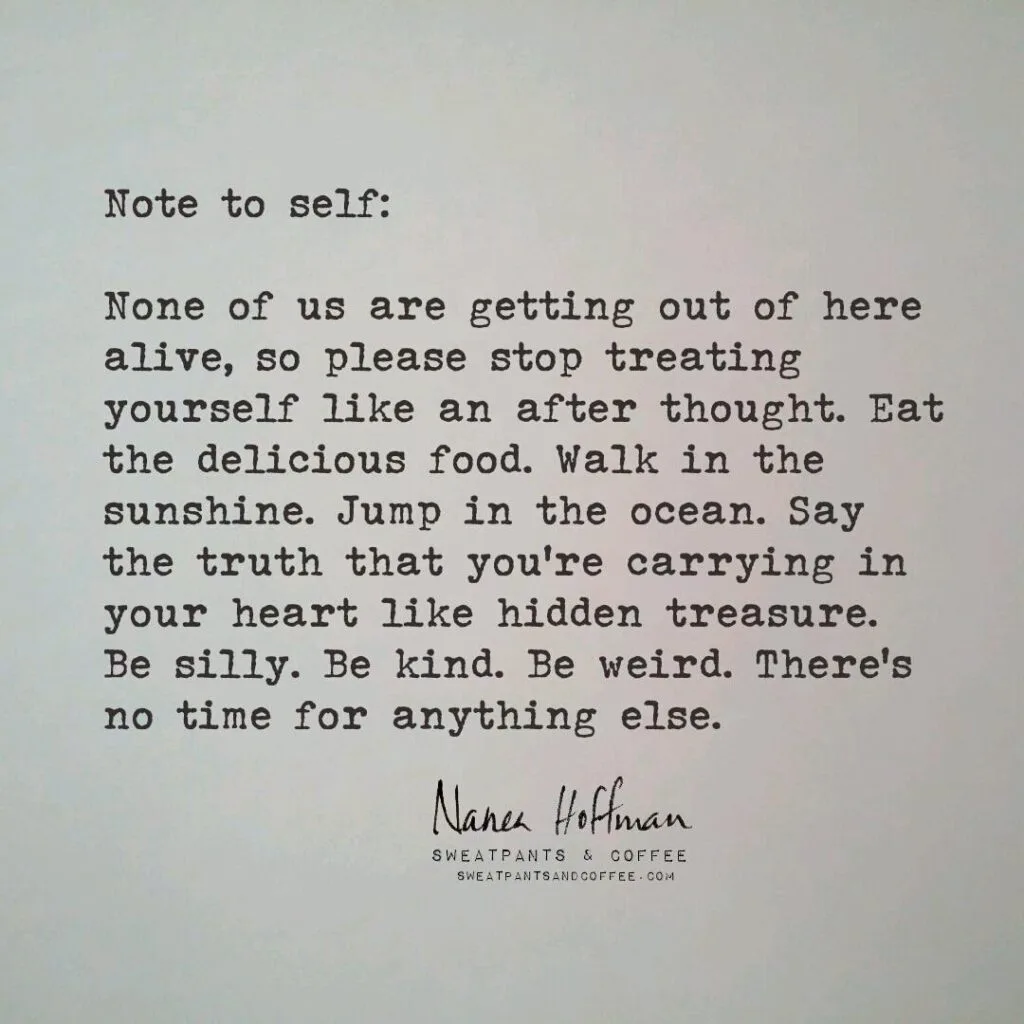 Note to self:
None of us are getting out of here
alive, so please stop treating
yourself like an after thought. Eat
the delicious food. Walk in the
sunshine. Jump in the ocean. Say
the truth that you're carrying in
your heart like hidden treasure.
Be silly. Be kind. Be weird. There's
no time for anything else.
Nanea Hoffman
SWEATPANTS & COFFEE
SWEATPANTSANDCOFFEE.COM